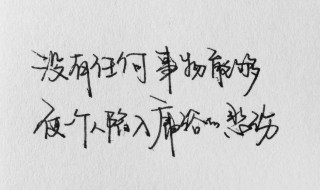 没有任何事物能够
使一个人陷入廉洁的悲伤